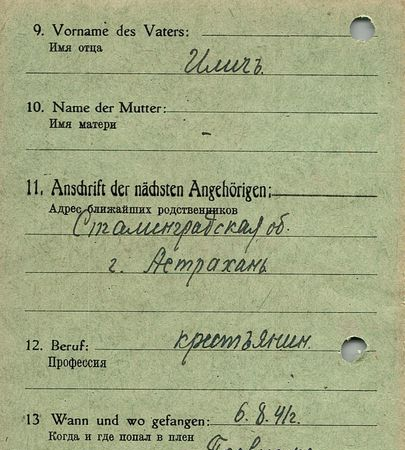 9. Vorname des Vaters:
Имя отца
Иличъ.
10. Name der Mutter:
Имя матери
–
11. Anschrift der nächsten Angehörigen:
Адрес ближайших родственников
Сталинградская об.
г. Астрахань
12. Beruf: крестьянин.
Профессия
13 Wann und wo gefangen: 6.8.41г.
Когда и где попал в плен